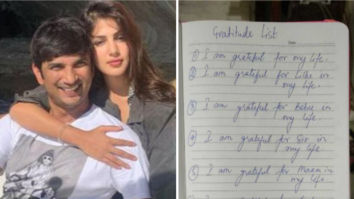 Gratitude List
Date
① I am grateful for my life.
② I am grateful for Lillu in
my life
③ I am grateful for Bebu in
my life.
④ I am grateful for Sir in
my life
⑤ I am grateful for Maam in
my life